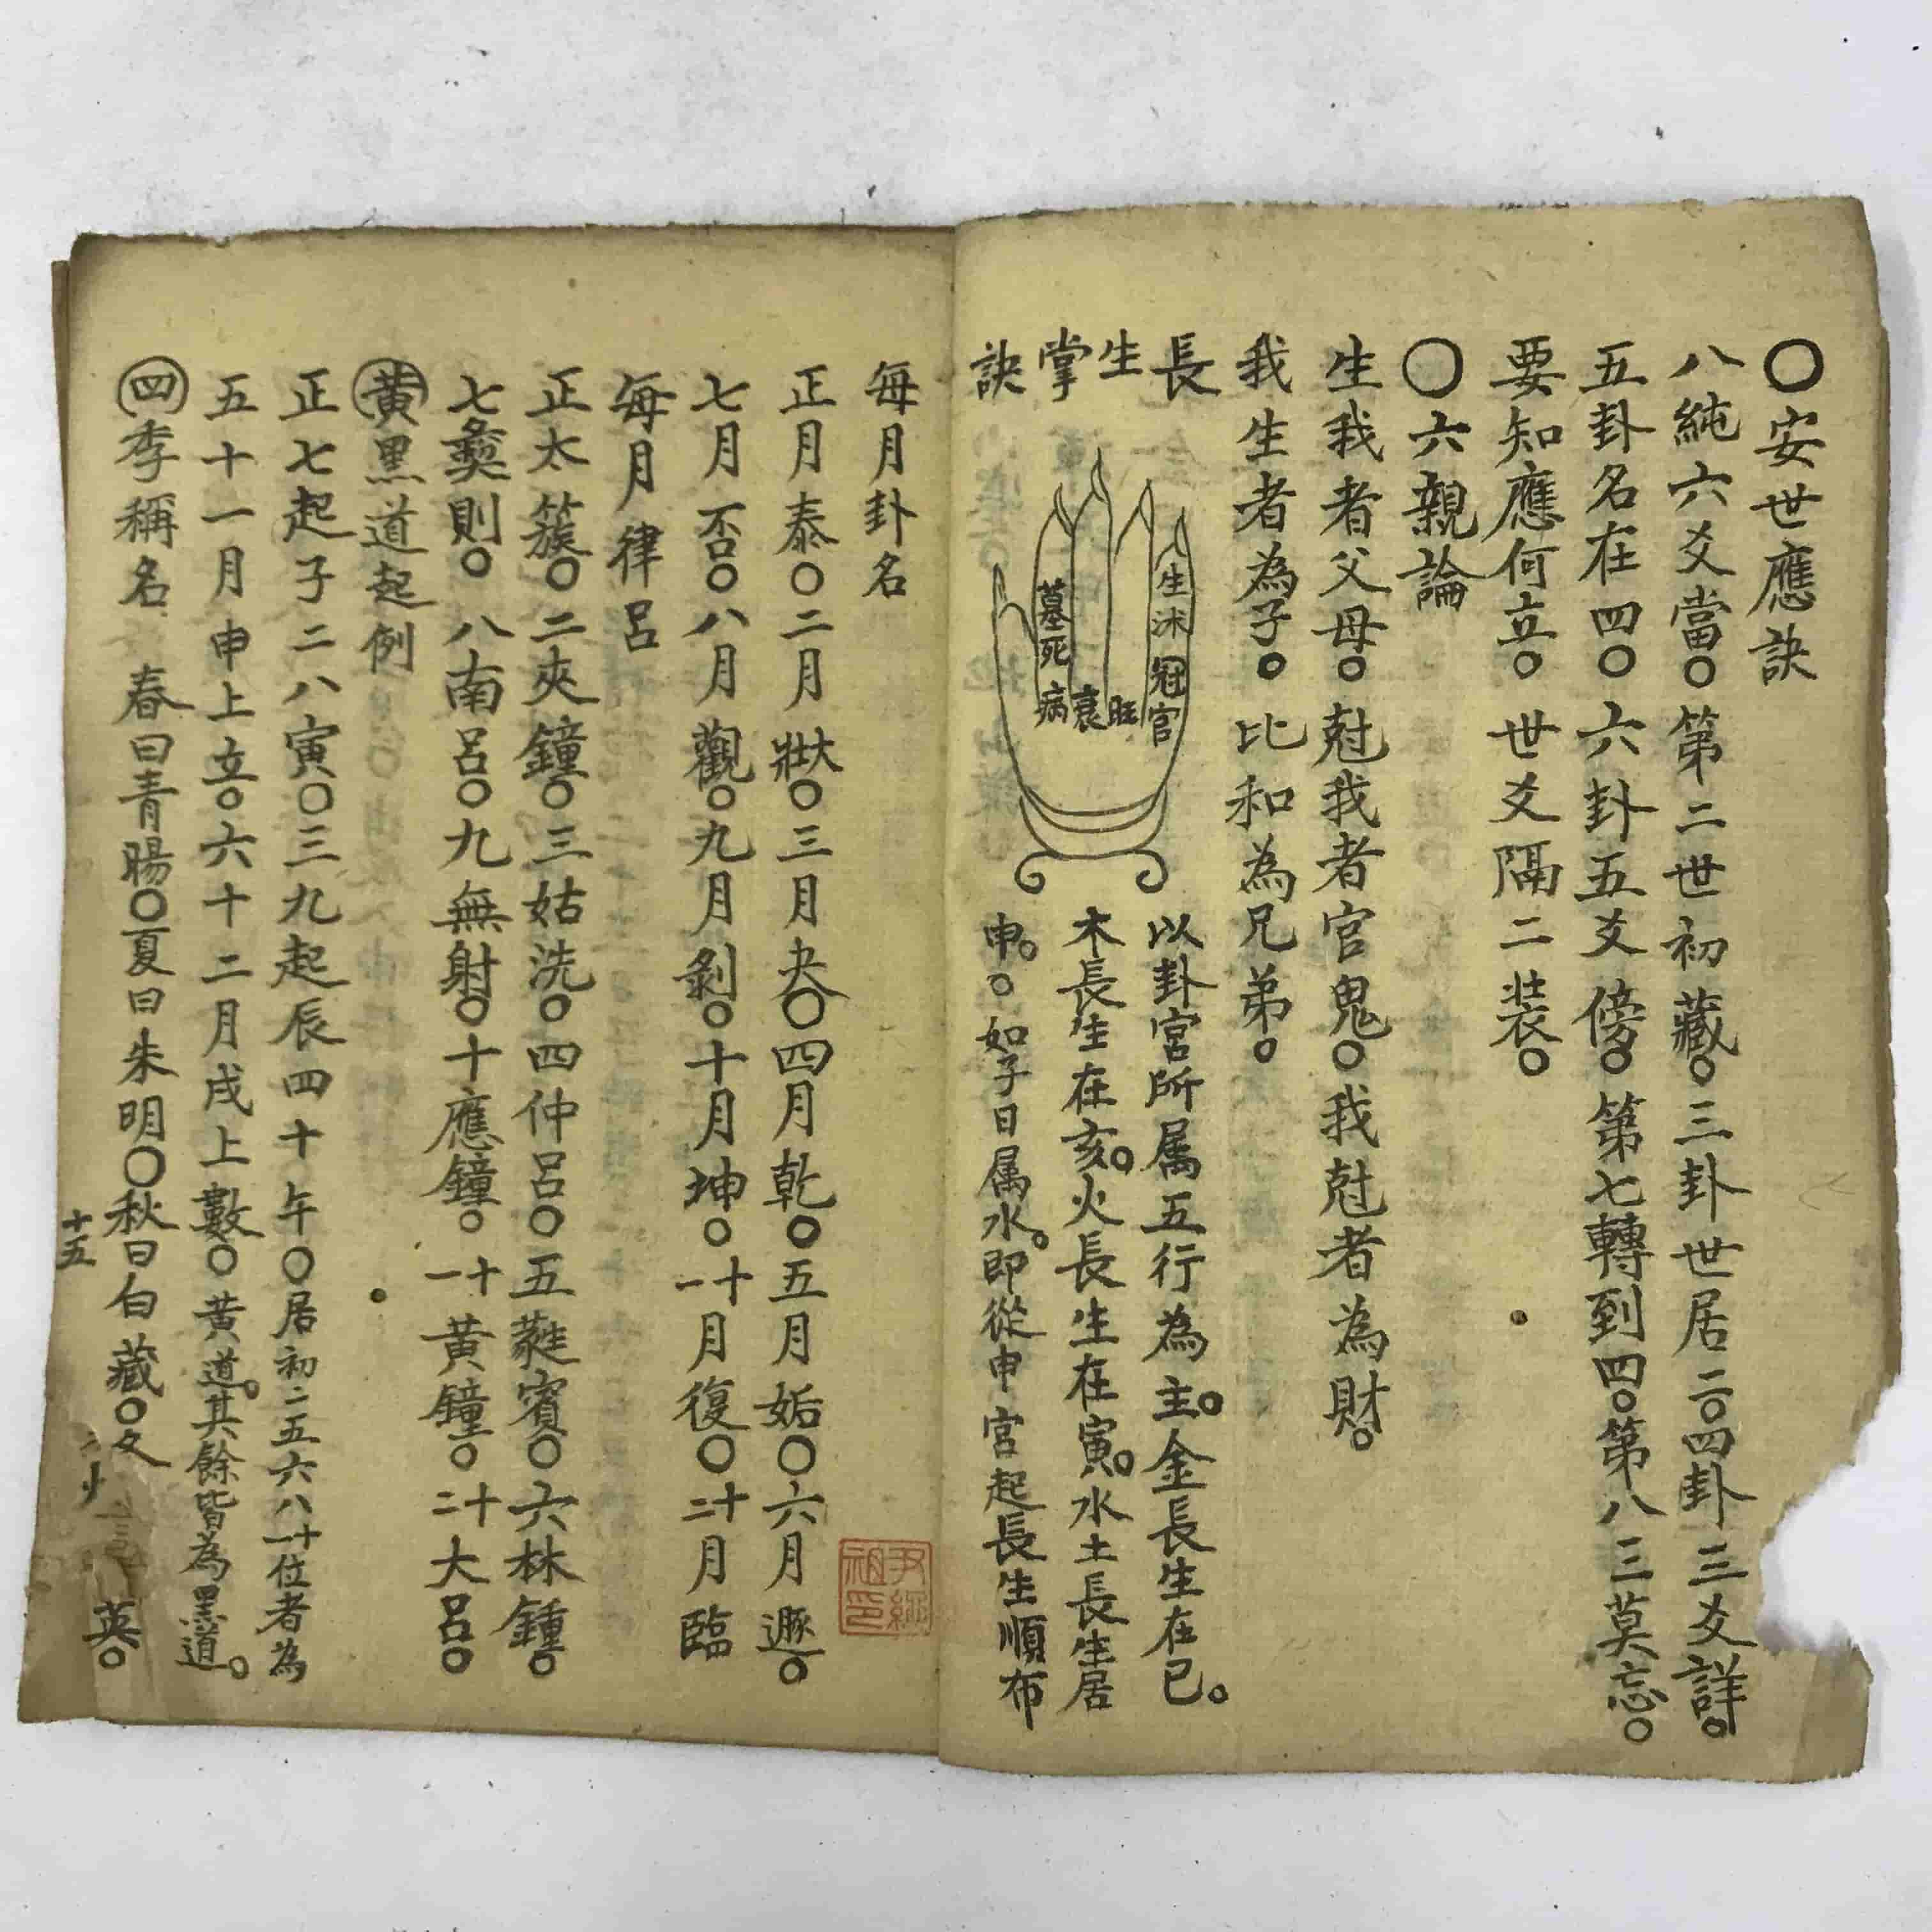 〇安世應訣
八純六爻當〇第二世初藏〇三卦世居二〇四卦三爻詳〇
五卦名在四〇六卦五爻傍〇第七轉到四〇第八三莫忘〇
要知應何立〇世爻隔二裝〇
〇六親論
生我者父母〇尅我者官鬼〇我尅者為財〇
我生者為子〇比和為兄弟〇
長生掌訣
生沐冠官
旺
衰
病死墓
以卦宮所属五行為主〇金長生在巳〇
木長生在亥〇火長生在寅〇水土長生居
申〇〇如子日属水〇即從申宮起長生順布
每月卦名
正月泰〇二月大壯〇三月夬〇四月乾〇五月姤〇六月遯〇
七月否〇八月觀〇九月剝〇十月坤〇十一月復〇十二月臨
每月律呂
正太簇〇二夾鐘〇三姑洗〇四仲呂〇五蕤賓〇六林鍾〇
七夷則〇八南呂〇九無射〇十應鐘〇十一黃鐘〇十二大呂〇
黃黑道起例
正七起子二八寅〇三九起辰四十午〇居初二五六八十一位者為
五十一月申上立〇六十二月戌上數〇黃道〇其餘皆為黑道〇
四季稱名 春曰青暘〇夏曰朱明〇秋曰白藏〇冬 英〇
十五